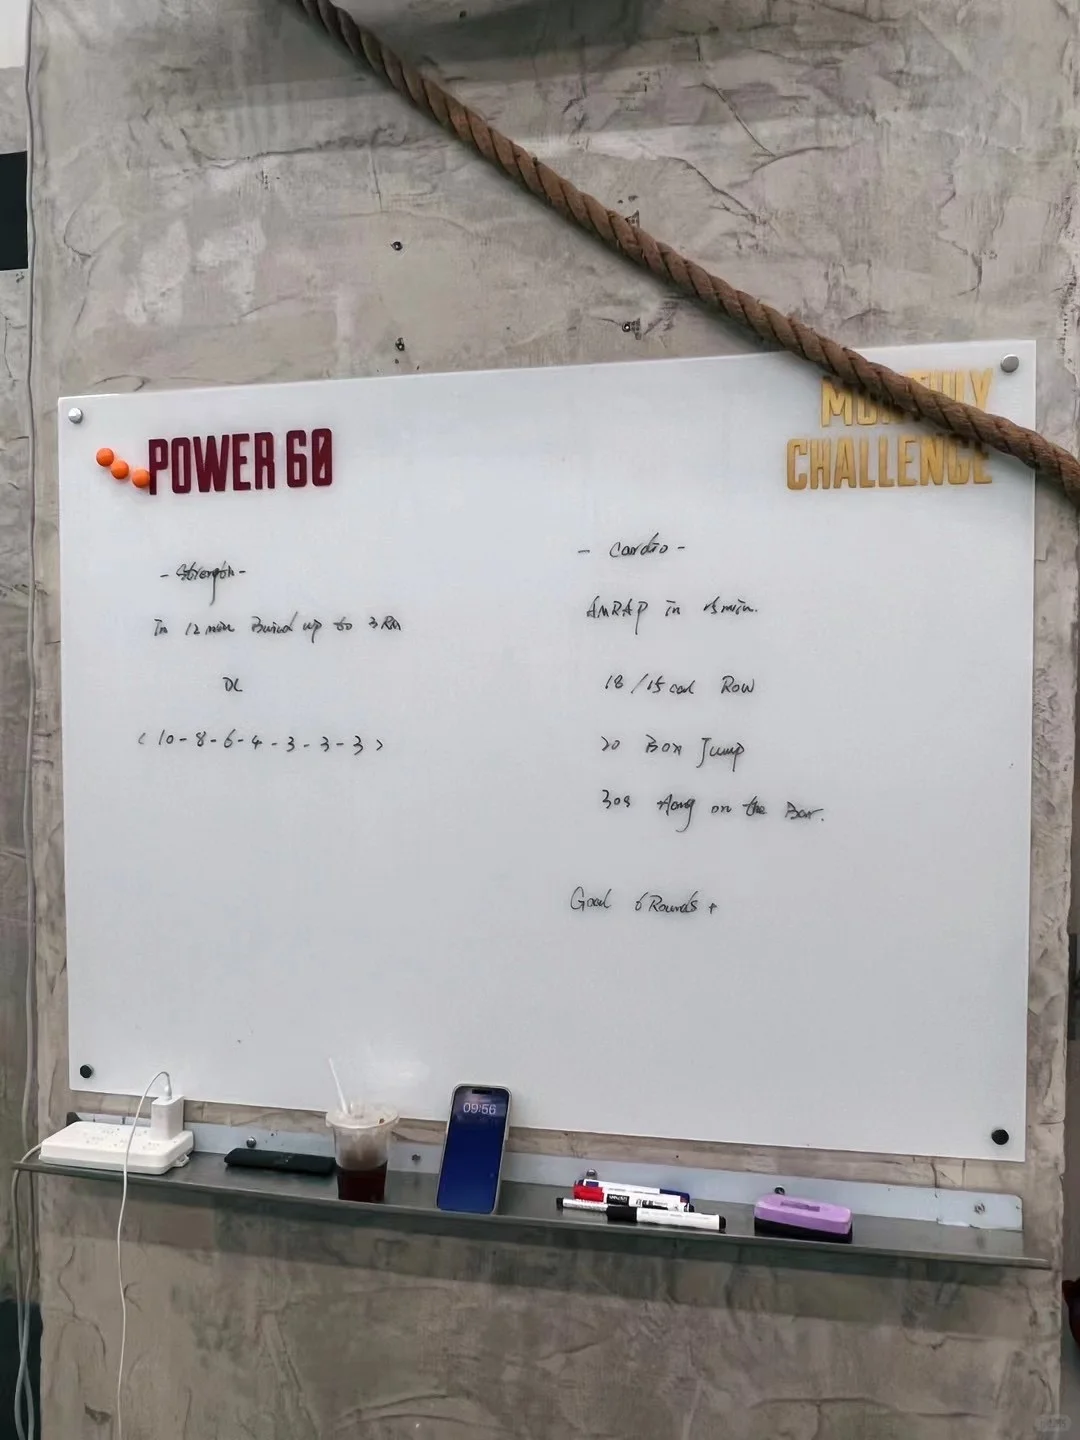 POWER 60
MONTHLY
CHALLENGE
- Strength -
In 12 min Build up to 3 RM
DL
< 10 - 8 - 6 - 4 - 3 - 3 - 3 >
- Cardio -
AMRAP in 15 min.
18 / 15 cal Row
20 Box Jump
30s Hang on the Bar.
Goal 6 Rounds +
09:56